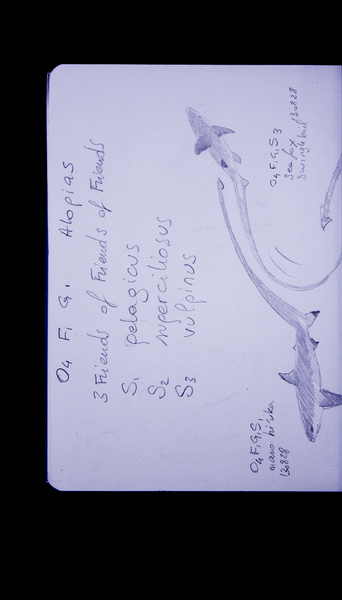 O4 F1 G1 Alopias
3 Friends of Friends of Friends
S1 pelagicus
S2 superciliosus
S3 vulpinus
O4 F1 G1 S1
mano hi'uka
130828
O4 F1 G1 S3
Sea fox
Swingletail 130828